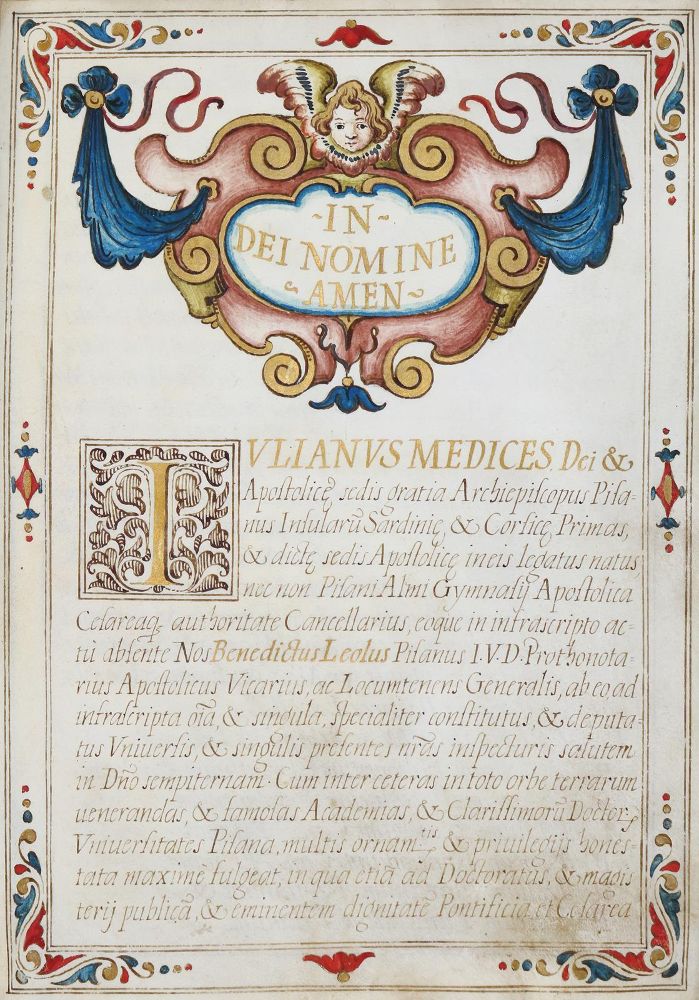 ~IN~
DEI NOMINE
~AMEN~
IVLIANVS MEDICES. Dei &
Apostolicę sedis gratia Archiepiscopus Pisa-
nus Insularū Sardinię, & Corsicę Primas,
& dictę sedis Apostolicę in eis legatus natus,
nec non Pisani Almi Gymnasij Apostolica
Cesareaq; authoritate Cancellarius, eoque in infrascripto ac-
tū absente Nos Benedictus Leolus Pisanus I.V.D. Prothonota-
rius Apostolicus Vicarius, ac Locumtenens Generalis, ab eo ad
infrascripta oīa, & singula, specialiter constitutus, & deputa-
tus Vniuersis, & singulis presentes nr̄as inspecturis salutem
in Dn̄o sempiternam. Cum inter ceteras in toto orbe terrarum
uenerandas, & famosas Academias, & Clarissimorū Doctor;
Vniuersitates Pisana, multis ornam.tis & priuilegijs hones-
tata maximè fulgeat, in qua etiā ad Doctoratus, & magis
terij publicā, & eminentem dignitatē Pontificia, et Cesarea